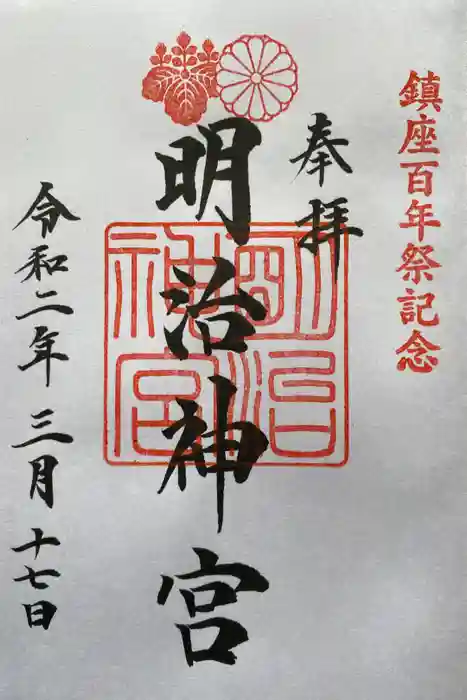 鎮座百年祭記念
奉拝
明治神宮
明治神宮
令和二年三月十七日